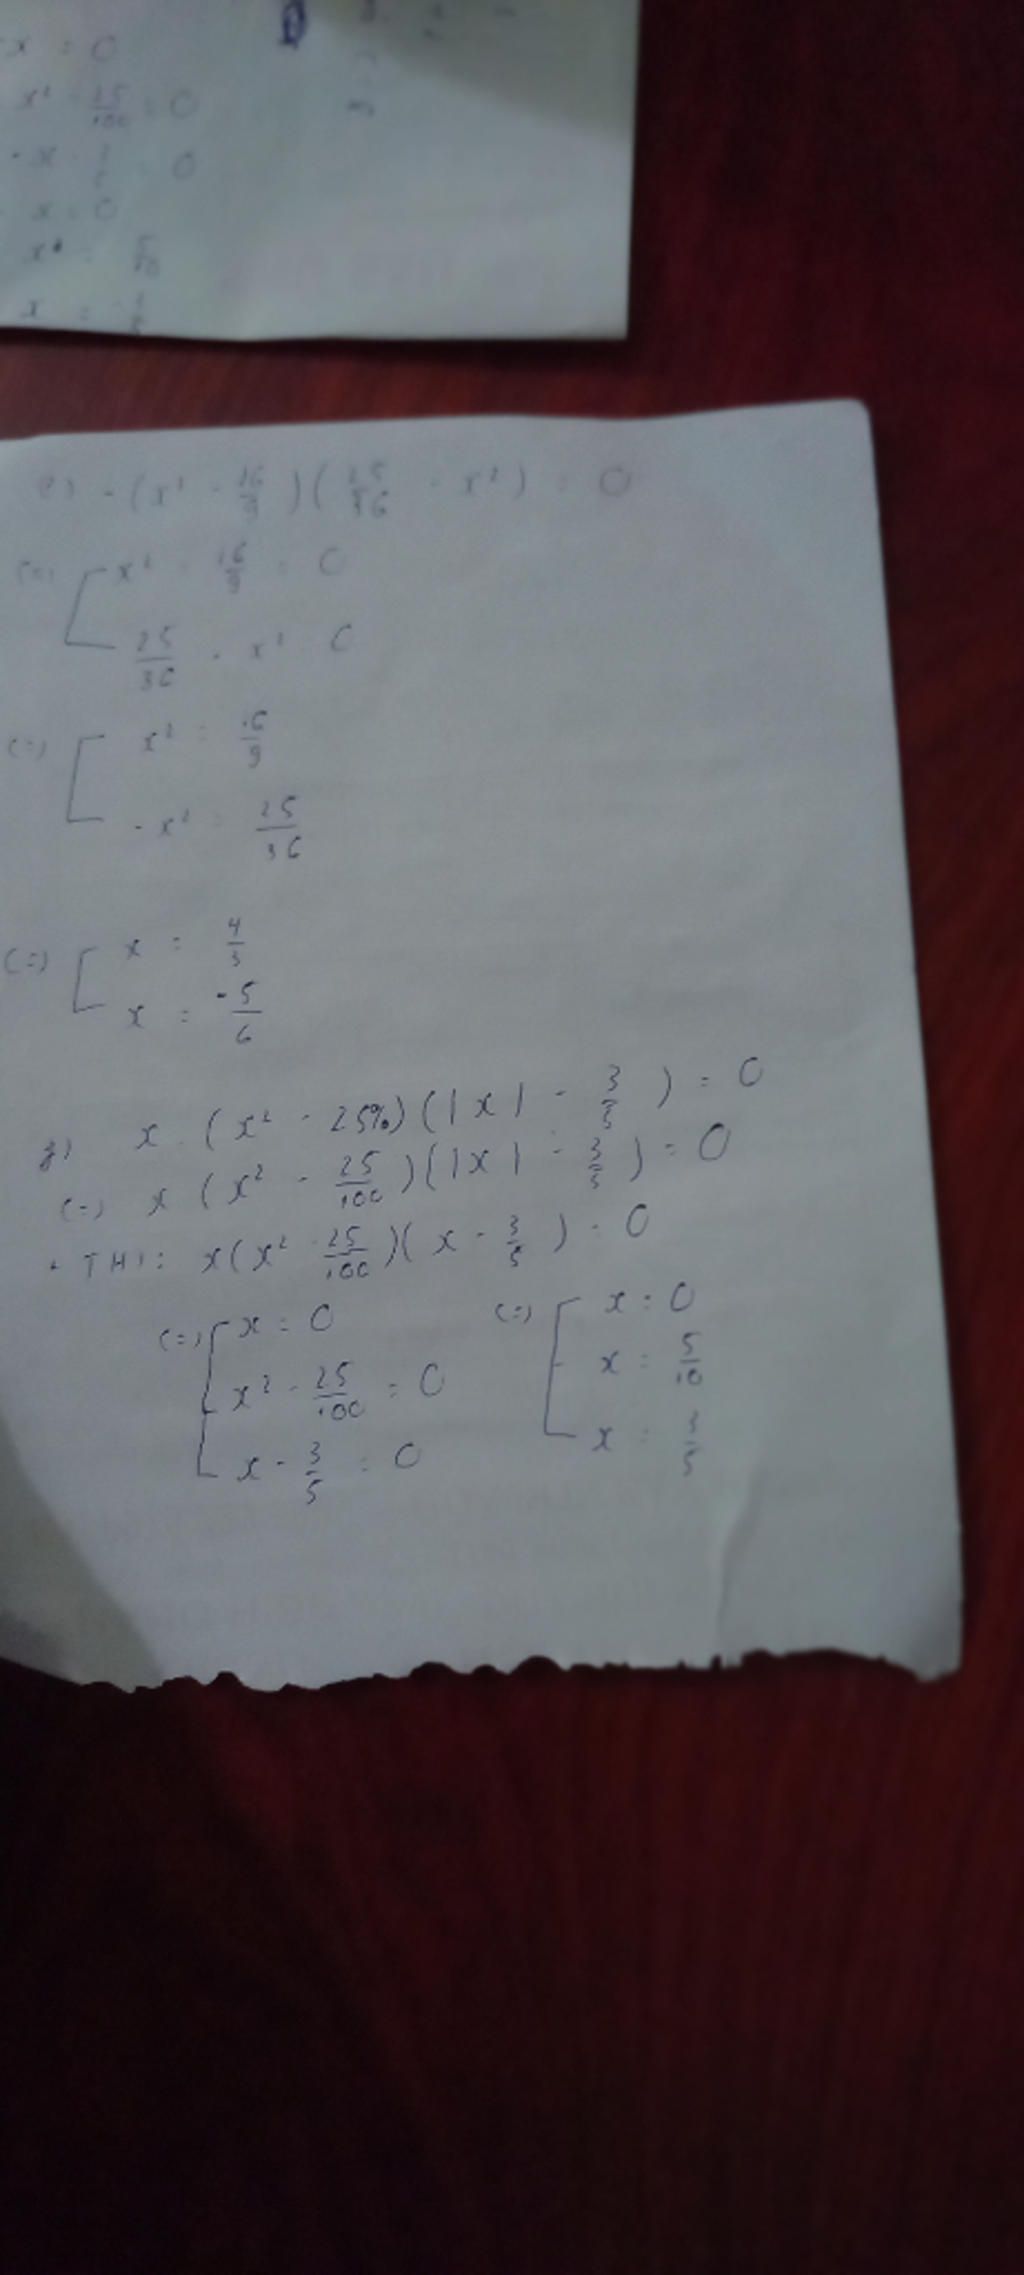 x = 0
x² - 25/100 = 0
x = 0
e) -(x² - 16/9)(25/36 - x²) = 0
(=) [ x² - 16/9 = 0
25/36 - x² = 0
(=) [ x² = 16/9
-x² = 25/36
(=) [ x = 4/3
x = -5/6
g) x.(x² - 25%)(|x| - 3/5) = 0
(=) x(x² - 25/100)(|x| - 3/5) = 0
• TH1: x(x² - 25/100)(x - 3/5) = 0
(=) [ x = 0
x² - 25/100 = 0
x - 3/5 = 0
(=) [ x = 0
x = 5/10
x = 3/5